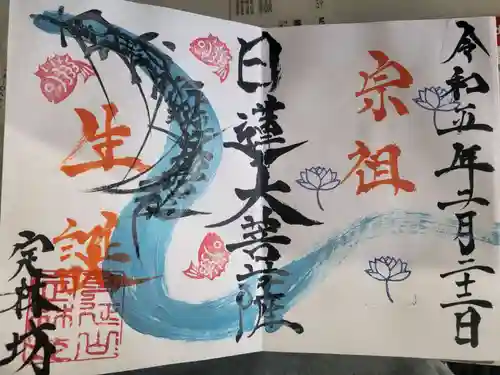 令和五年二月二十二日
宗祖
日蓮大菩薩
生誕
定林坊